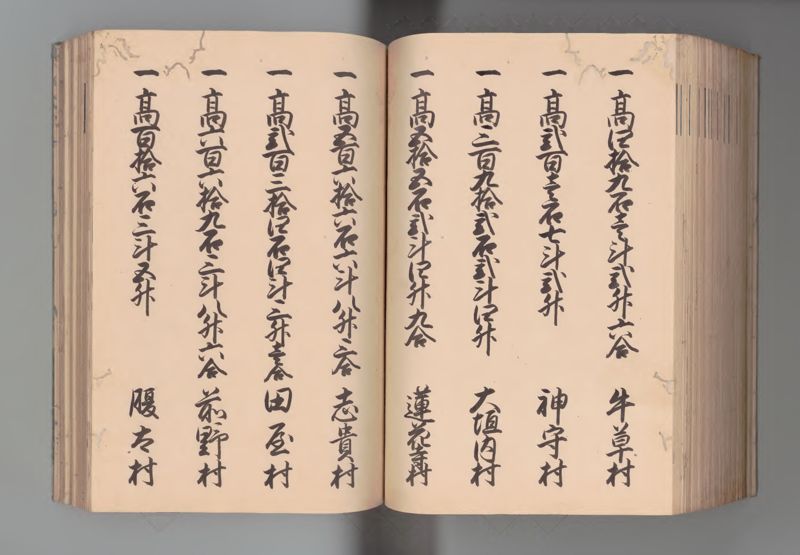 一 高四拾九石壱斗弐升六合 牛草村
一 高弐百壱石七斗弐升 神守村
一 高三百九拾弐石弐斗四升 大垣内村
一 高五拾五石弐斗四升九合 蓮花寺村
一 高五百六拾六石六斗八升三合 志貴村
一 高弐百三拾四石四斗三升壱合 田屋村
一 高六百六拾九石三斗八升六合 前野村
一 高百拾六石三斗五升 腹太村